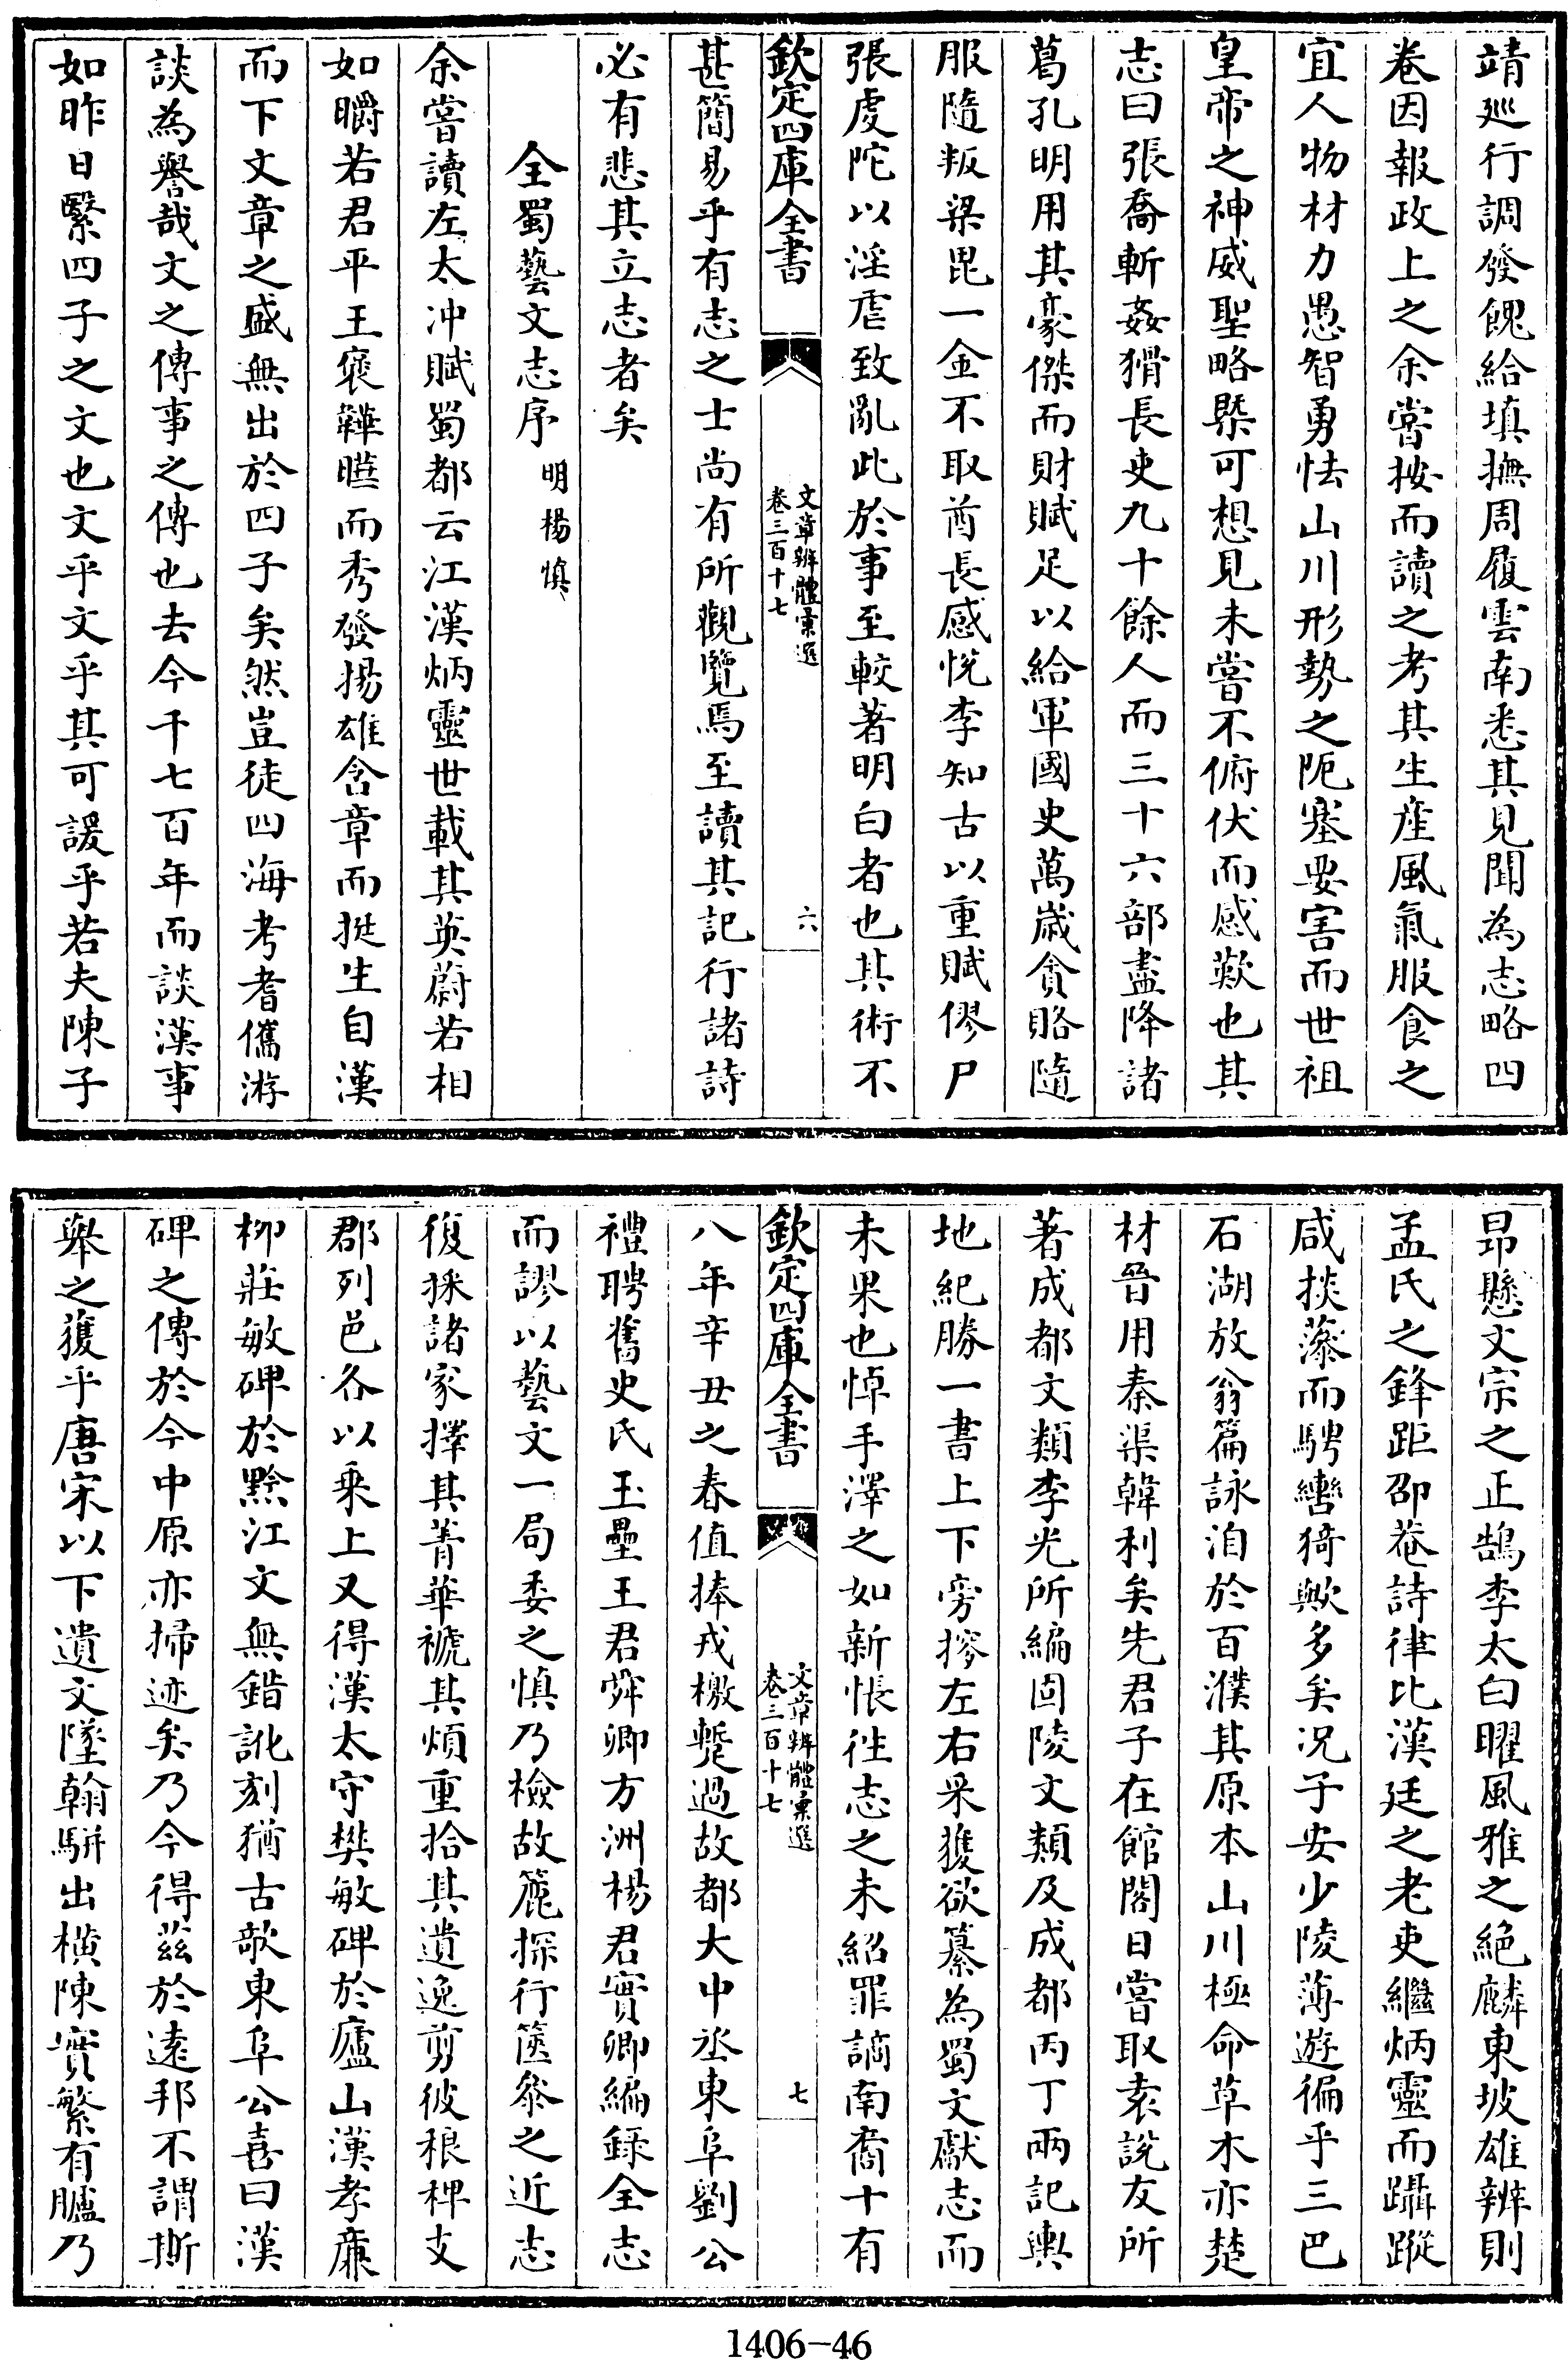 靖巡行調發餽給填撫周履雲南悉其見聞為志略四
卷因報政上之余嘗按而讀之考其生産風氣服食之
宜人物材力愚智勇怯山川形勢之阨塞要害而世祖
皇帝之神威聖略槩可想見未嘗不俯伏而感歎也其
志曰張喬斬姦猾長吏九十餘人而三十六部盡降諸
葛孔明用其豪傑而財賦足以給軍國史萬歲貪賂隨
服隨叛梁毘一金不取酋長感悅李知古以重賦僇尸
張虔陀以淫虐致亂此於事至較著明白者也其術不
欽定四庫全書
文章辨體彙選
卷三百十七
六
甚簡易乎有志之士尚有所觀覽焉至讀其記行諸詩
必有悲其立志者矣
全蜀藝文志序 明楊慎
余嘗讀左太冲賦蜀都云江漢炳靈世載其英蔚若相
如皭若君平王褒韡曄而秀發揚雄含章而挺生自漢
而下文章之盛無出於四子矣然豈徒四海考耆儁游
談為譽哉文之傳事之傳也去今千七百年而談漢事
如昨日繄四子之文也文乎文乎其可諼乎若夫陳子
昂懸文宗之正鵠李太白曜風雅之絕麟東坡雄辨則
孟氏之鋒距邵菴詩律比漢廷之老吏繼炳靈而躡蹤
咸掞藻而騁轡猗歟多矣況子安少陵薄遊徧乎三巴
石湖放翁篇詠洎於百濮其原本山川極命草木亦楚
材晉用秦渠韓利矣先君子在館閣日嘗取袁說友所
著成都文類李光所編固陵文類及成都丙丁兩記輿
地紀勝一書上下旁搜左右采獲欲纂為蜀文獻志而
未果也悼手澤之如新悵往志之未紹罪謫南裔十有
欽定四庫全書
文章辨體彙選
卷三百十七
七
八年辛丑之春值捧戎檄蹔過故都大中丞東阜劉公
禮聘舊史氏玉壘王君舜卿方洲楊君實卿編錄全志
而謬以藝文一局委之慎乃檢故簏探行篋參之近志
復採諸家擇其菁華褫其煩重拾其遺逸剪彼稂稗支
郡列邑各以乘上又得漢太守樊敏碑於廬山漢孝廉
柳莊敏碑於黔江文無錯訛刻猶古歒東阜公喜曰漢
碑之傳於今中原亦掃迹矣乃今得茲於遠邦不謂斯
舉之獲乎唐宋以下遺文墜翰駢出橫陳實繁有臚乃
1406-46